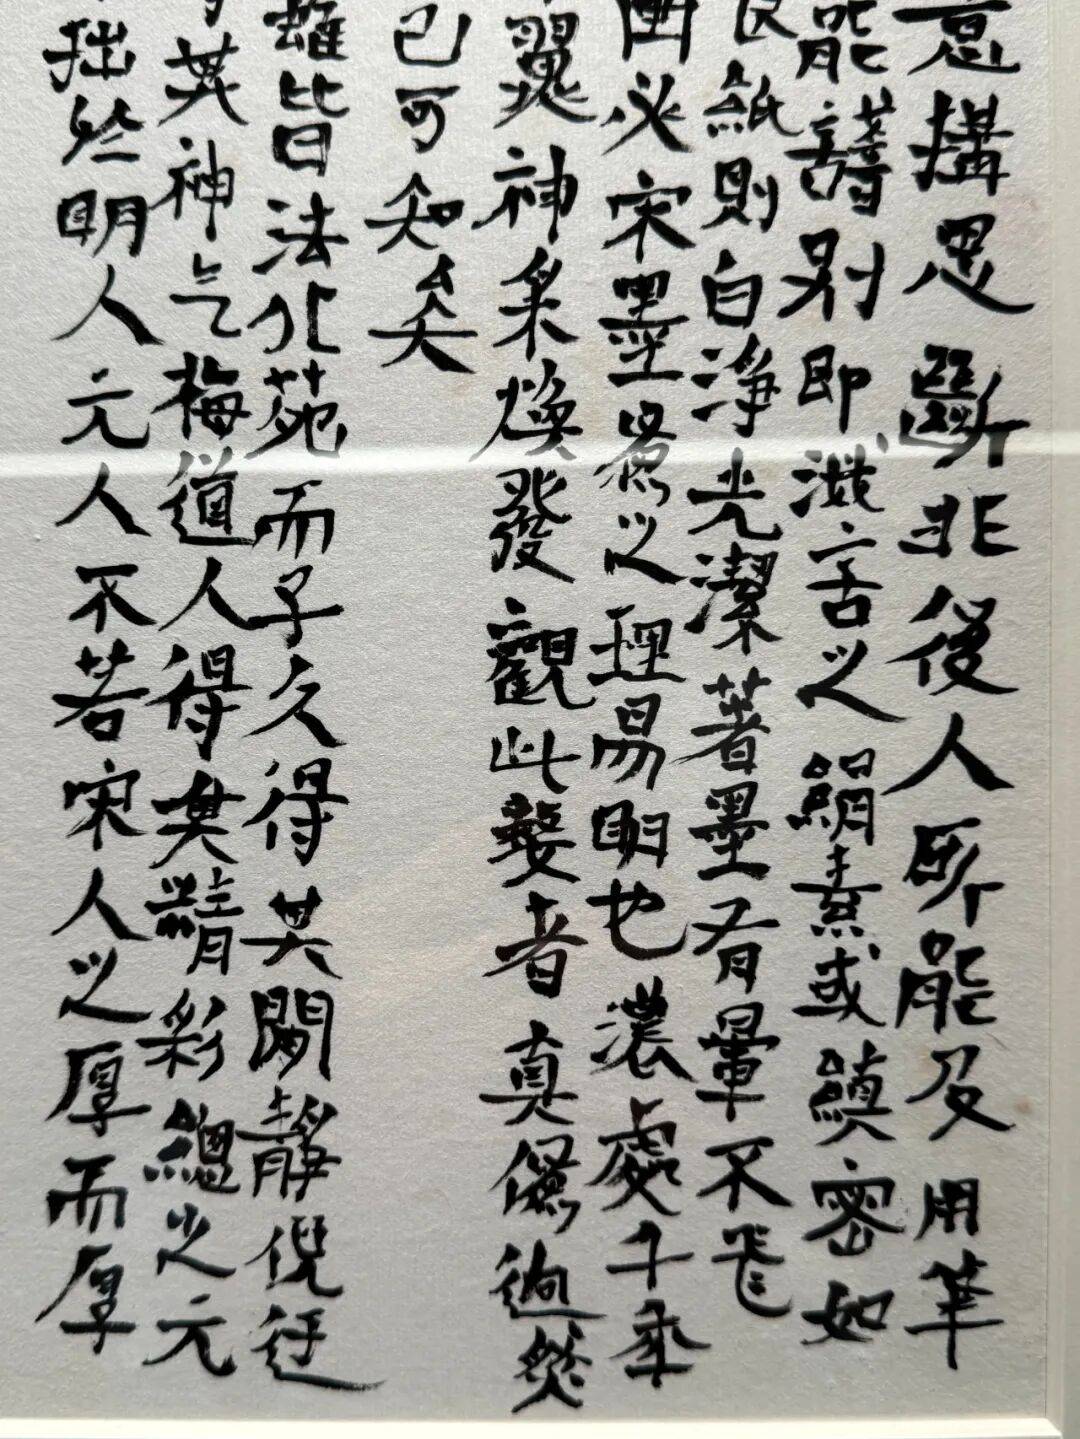 意搆思斷非後人所能及用筆
能譆别即滅舌之絹素或縝密如
紙則白淨光潔著墨有暈不飛
固必宋墨爲之理易明也濃處千年
翼神采煥發觀此數者真僞迥然
已可知矣
雖皆法北苑而子久得其閒靜倪迂
其神气梅道人得其精彩總之元
拙然明人元人不若宋人之厚而厚